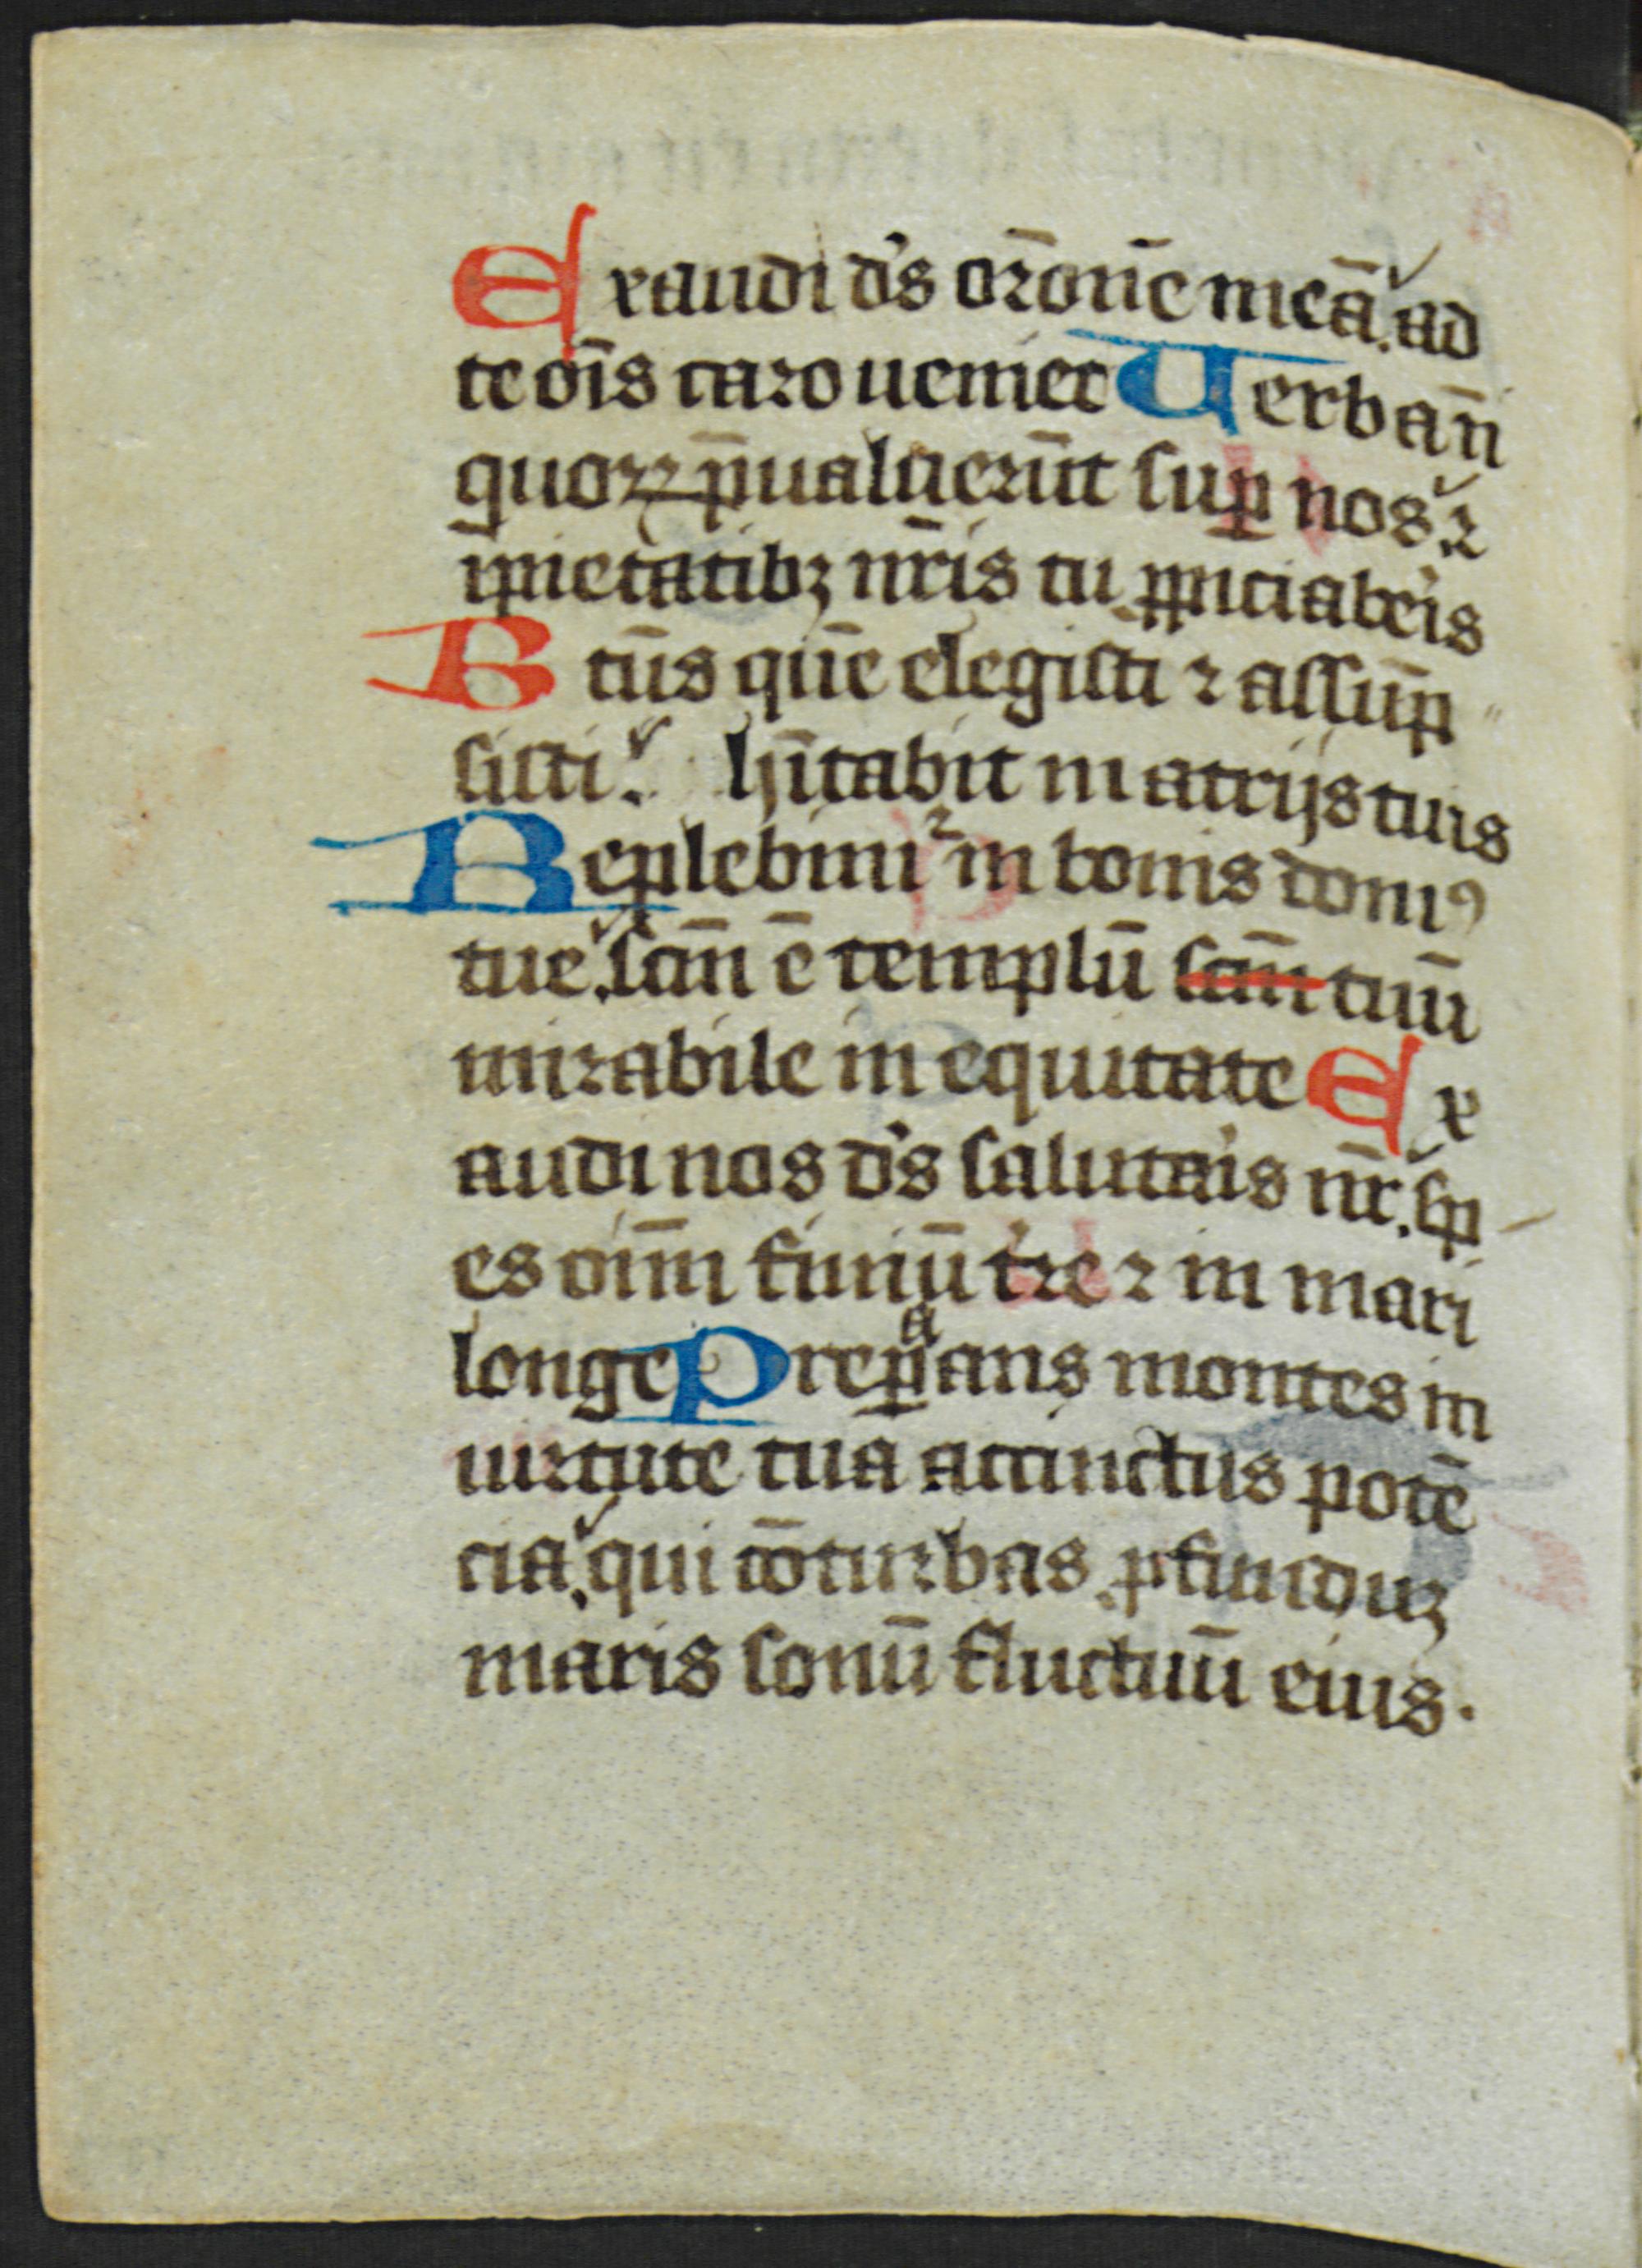 Exaudi d's or̄onē meā. ad
te oīs caro ueniet Uerba n̄
quoꝝ p̄ualuerūt suꝑ nos. ⁊
īpietatibꝫ nr̄is tu ꝓpiciaber̾is
Btūs quē elegisti ⁊ assūp
sisti. hītabit in atrijs tuis
Replebimur in bonis domꝰ
tue. scm̄ ē templū scm̄ tuū
mirabile in equitate Ex
audi nos d's salutar̾is nr̄. sp
es oīm finiū t're ⁊ in mari
longe Prepᵃans montes in
uirtute tua accinctus potē
cia. qui cōturbas ꝓfunduꝫ
maris sonū fluctuū eius.